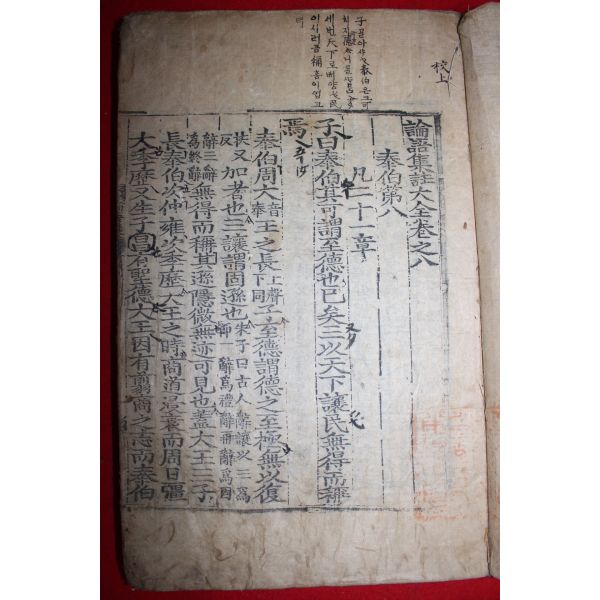 校上
子ᄀᆞᆯᄋᆞ샤ᄃᆡ泰伯은그可
세번天下로ᄡᅥ讓호ᄃᆡ民
이시러곰稱홈이업고
녀
論語集註大全卷之八
泰伯第八
凡二十一章
子曰泰伯其可謂至德也已矣三以天下讓民無得而稱
焉
泰伯周大音泰王之長上聲下同子至德謂德之至極無以復
扶又反加者也三讓謂固遜也朱子曰古人辭讓以三爲節一辭爲禮辭再辭爲固
辭三辭爲終辭無得而稱其遜隱微無迹可見也蓋大王三子
長泰伯次仲雍次季歷大王之時商道浸衰而周日彊
大季歷又生子昌有聖德大王因有翦商之志而泰伯